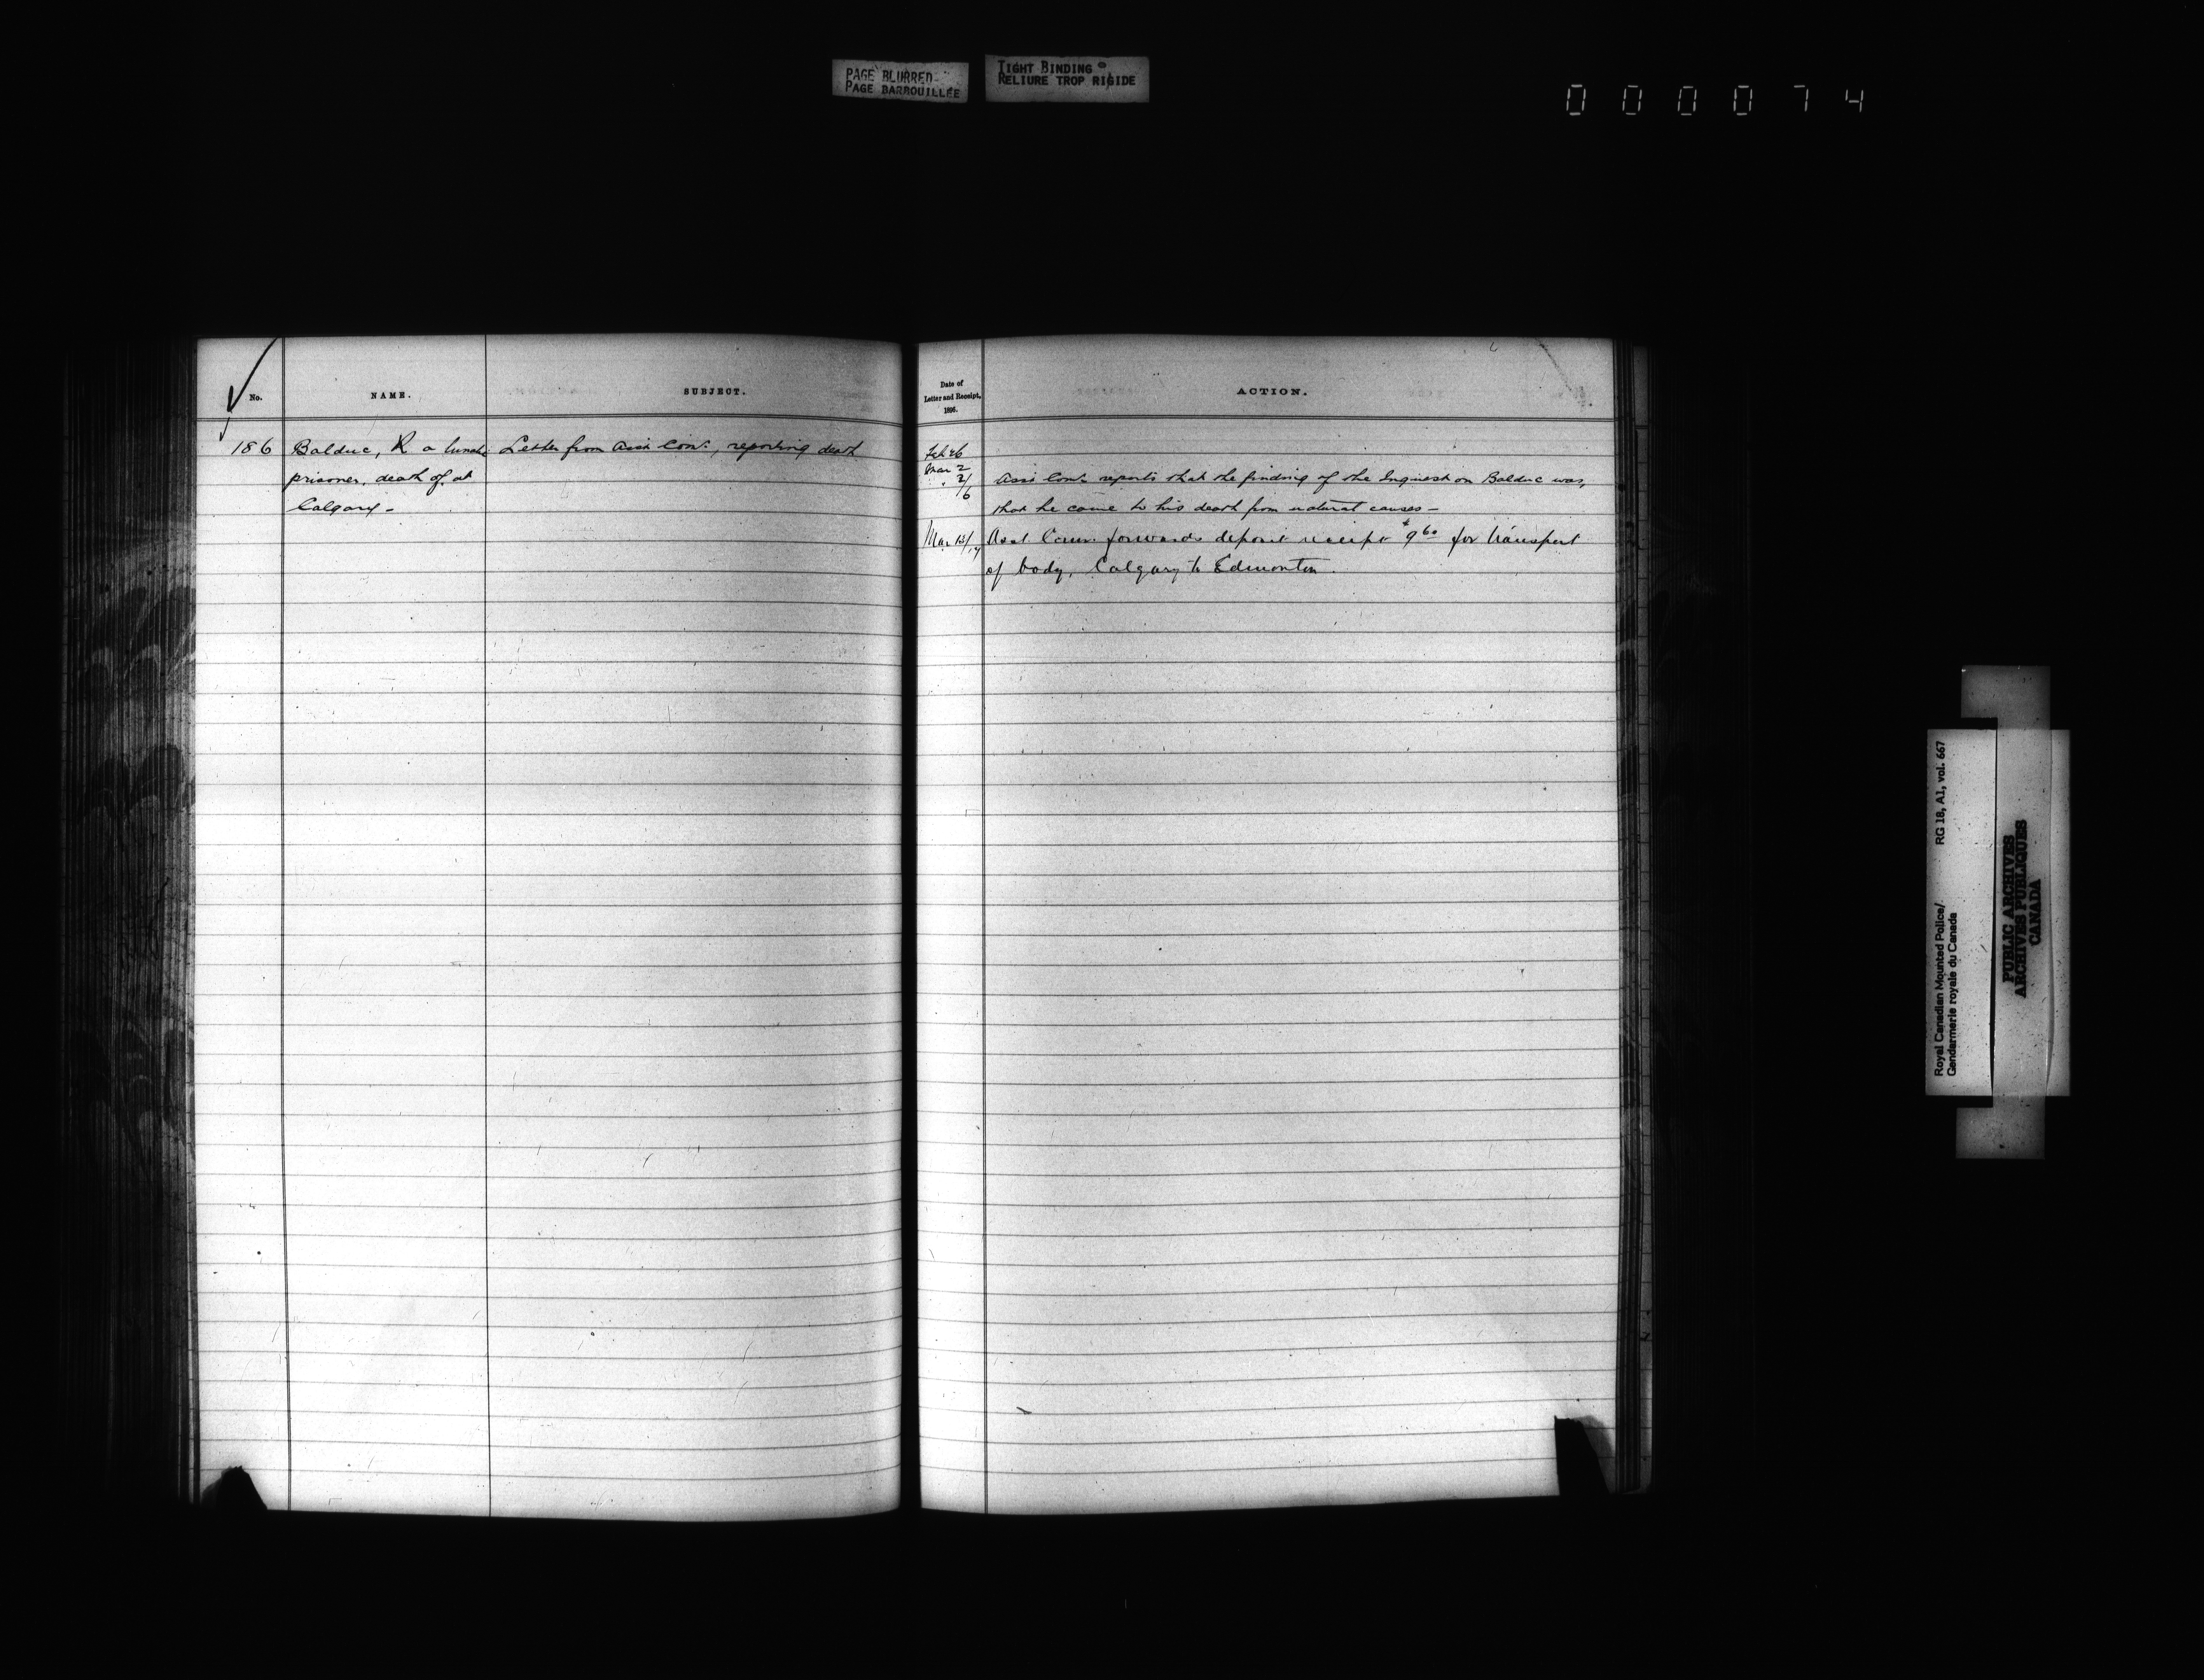 PAGE BLURRED
PAGE BARBOUILLÉE
TIGHT BINDING
RELIURE TROP RIGIDE
000074
No.
NAME.
SUBJECT.
186
Balduc, R a lunatic
prisoner, death of, at
Calgary -
Letter from Assi Com:, reporting death
Date of
Letter and Receipt,
1896.
ACTION.
Feb 26
Mar 2
" 2/
6
Assi Com: reports that the finding of the Inquest on Balduc was,
that he came to his death from natural causes -
Mar 13/17
Asst Comr. forwards deposit receipt $9 60 for transport
of body, Calgary to Edmonton.
Royal Canadian Mounted Police/
Gendarmerie royale du Canada
RG 18, A1, vol. 667
PUBLIC ARCHIVES
ARCHIVES PUBLIQUES
CANADA